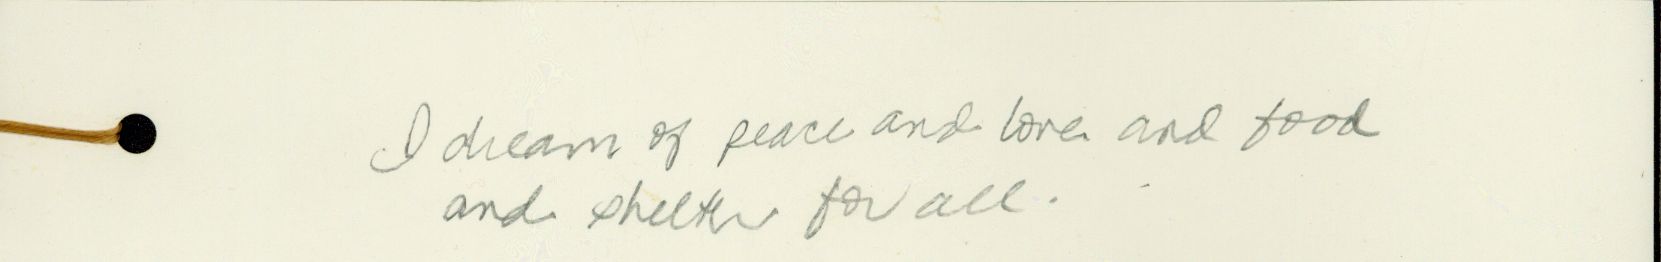 I dream of peace and love and food
and shelter for all.